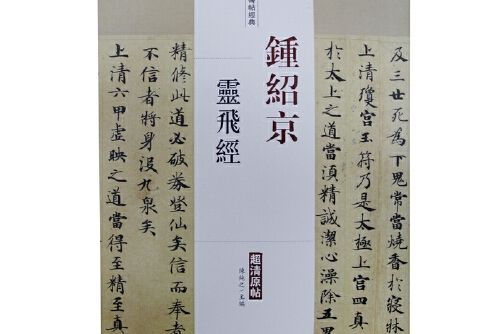 及三世死為下鬼常當燒香於寢
上清瓊宮玉符乃是太極上宮四真
於太上之道當湏精誠潔心澡除五
帖經典
鍾紹京
靈飛經
超清原帖
陳純之/主編
精修此道必破券登仙矣信而奉
不信者將身沒九泉矣
上清六甲虛映之道當得至精至